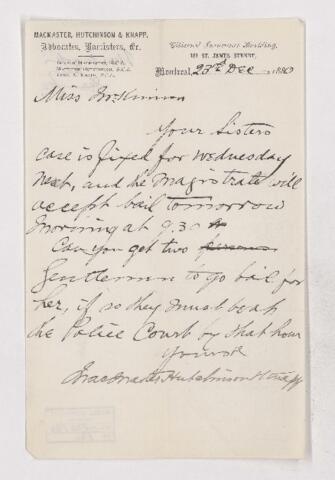 MACMASTER, HUTCHINSON & KNAPP,
Advocates, Barristers, &c.
Citizens' Insurance Building,
181 ST. JAMES STREET,
Montreal, 23rd Dec 1880
Miss McKinnon
Your Sisters
case is fixed for Wednesday
next, and the Magistrate will
accept bail tomorrow
morning at 9.30
Can you get two
Gentlemen to go bail for
her, if so they must be at
the Police Court by that hour
Yours &c
Macmaster Hutchinson & Knapp